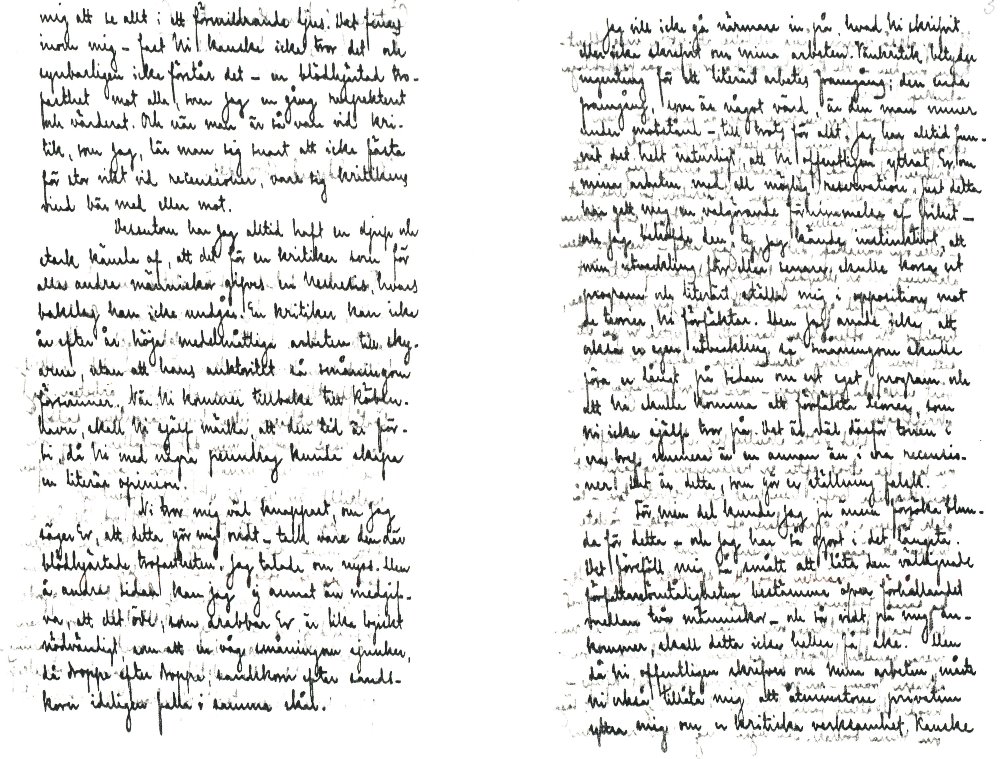 mig att se allt i ett förmildrande ljus. Det finns
inom mig – fast Ni kanske icke tror det och
synbarligen icke förstår det – en blödhjertad tro-
fasthet mot alla, som jag en gång respekterat
och värderat. Och när man är så van vid kri-
tik, som jag, lär man sig snart att icke fästa
för stor vikt vid recensioner, vare sig kritikens
vind bär med eller mot.
Dessutom har jag alltid haft en djup och
stark känsla af, att det för en kritiker som för
alla andra människor gifves en Nemesis, hvars
bakslag han icke undgår. En kritiker kan icke
år efter år höja medelmåttiga arbeten till sky-
arna, utan att hans auktoritet så småningom
försvinner. När Ni kommer tillbaka till Köben-
havn, skall Ni sjelf märka, att den tid är för-
bi, då Ni med några penndrag kunde skapa
en literär opinion.
Ni tror mig väl knappast, om jag
säger Er, att detta gör mig ondt – tack vare den där
blödhjertade trofastheten. Jag talade om nyss. Men
å andra sidan kan jag ej annat än medgif-
va, att det öde, som drabbar Er är lika bjickt
nödvändigt som att en våg småningom sjunker,
då droppe efter droppe, sandskorn efter sands-
korn ideligen falla i samma skål.
Jag vill icke gå närmare in på, hvad Ni skrifvit
eller icke skrifvit om mina arbeten. Vänkritik betyder
ingenting för ett literärt arbetes framgång; den enda
framgång, som är något värd, är den man vinner
under motstånd – till trots för allt. Jag har alltid fun-
nit det helt naturligt, att Ni offentligen yttrat Er om
mina arbeten med all möjlig reservation. Just detta
har gett mig en välgörande förnimmelse af frihet –
och jag behöfde den, ty jag kände instinktivt, att
min utveckling förr eller senare skulle korsa ert
program och literärt ställa mig i opposition mot
de teorier, Ni förfäktar. Men jag anade icke, att
också er egen utveckling så småningom skulle
föra er långt på sidan om ert eget program och
att Ni skulle komma att förfäkta teorier, som
Ni icke sjelf tror på. Det är väl därför tonen i
era bref numera är en annan än i era recensio-
ner! Det är detta, som gör er ställning falsk.
För, men del kunde jag ju ännu försöka blun-
da för detta – och jag har så gjort i det längsta.
Det föreföll mig så smått att låta den välsignade
författareömtåligheten bestämma öfver förhållandet
mellan två människor – och så vidt på mig an-
kommer, skall detta icke heller få ske. Men
då Ni offentligen skrifver om mina arbeten, måste
Ni också tillåta mig att åtminstone privatim
yttra mig om er kritiska verksamhet. Kanske